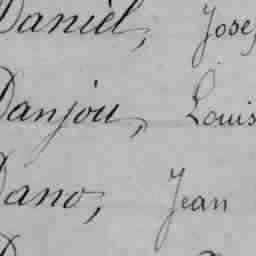 Daniel, Jose
Danjou, Louis
Dano, Jean